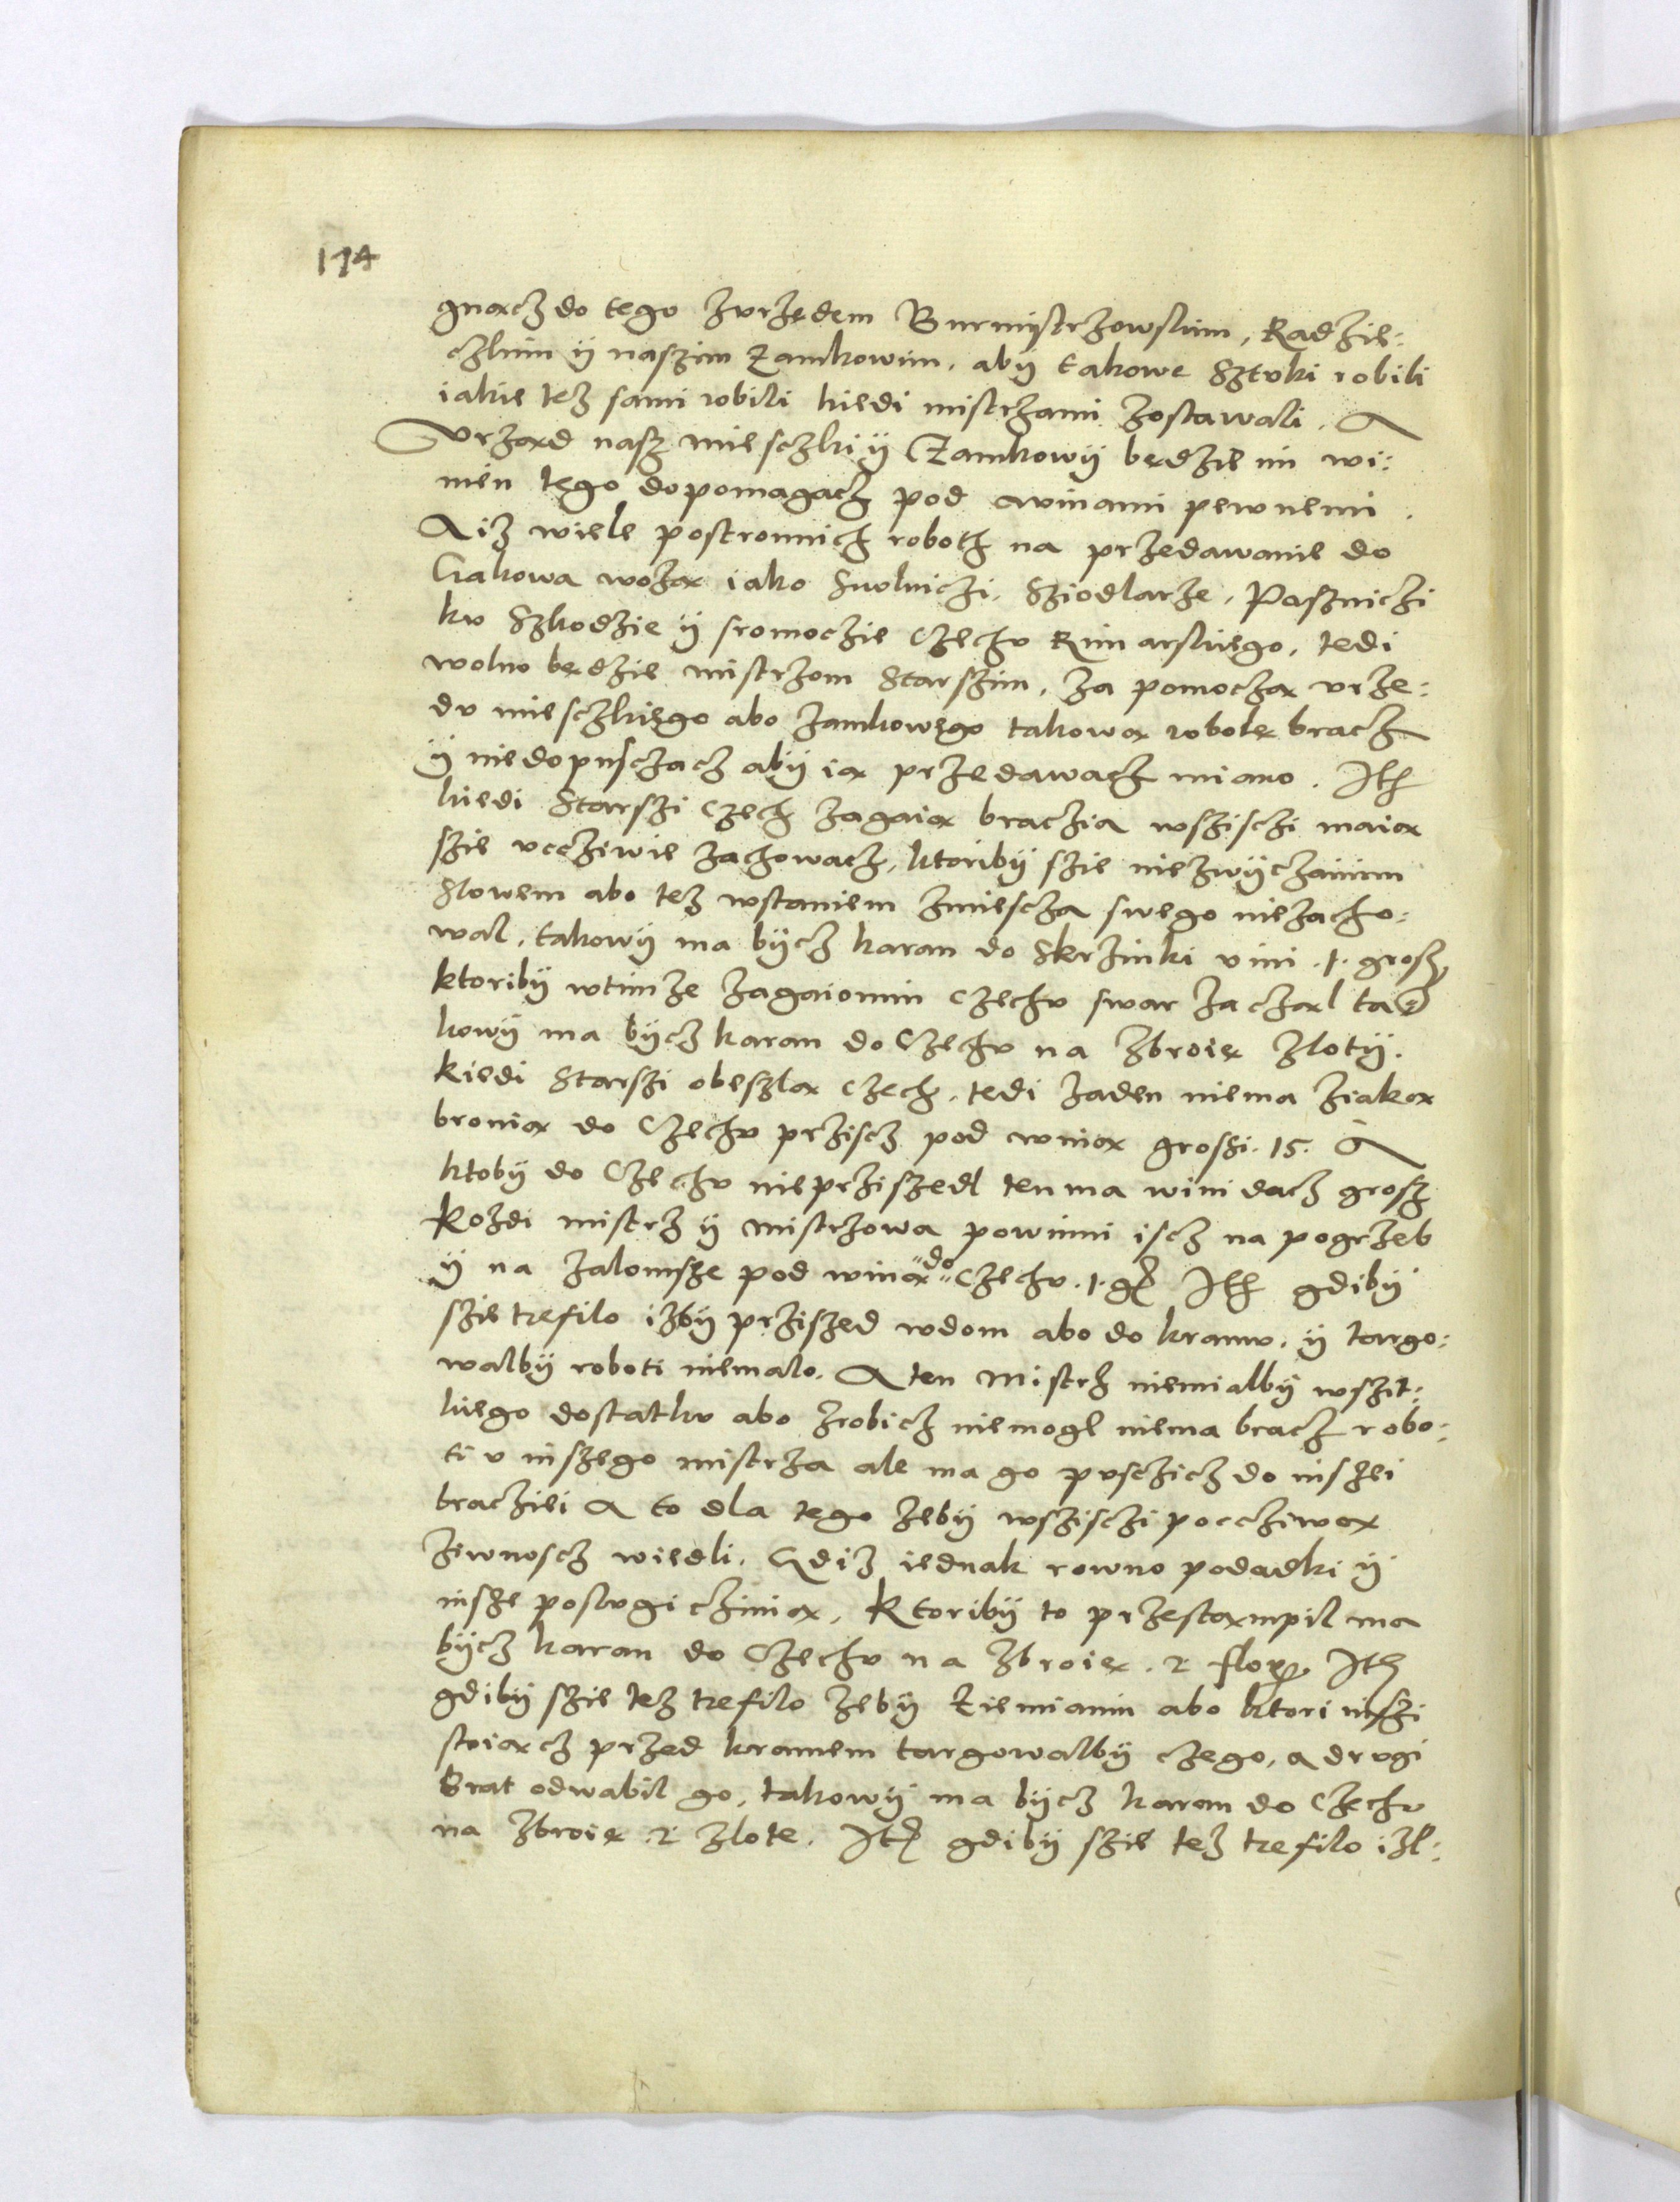 114
gnącz do tego zvrzędem Burmistrzowskim, Radzie:
czkim ÿ naszim Zamkowim, abÿ takowe Sztvki robili
iakie tez sami robili kiedi mistrzami zostawali. A
Vrząd nasz mieisczki ÿ Zamkowÿ będzie im wi:
nien tego dopomagacz pod winami pewnemi.
A iz wiele postronnich roboth na przedawanie do
Crakowa wożą iako Siodlarze, Paszniczi
kv Szkodzie ÿ sromoczie Czechv Rimarskiego, tedi
wolno będzie mistrzom Starszim, za pomoczą vrzę:
dv miesczkiego abo zamkowego takową robotę bracz
ÿ niedopusczacz abÿ ią przedawacz miano. Ith
kiedi Starszi Czech zagaią braczia wszisczi maią
szie vcziwie zachowacz, ktoribÿ szie niezwÿczainim
Slowem abo tez wstaniem zmiescza swego niezacho:
wal, takowÿ ma bÿcz karan do Skrzinki vini .1. grosz,
ktoribÿ wtimze zagaionim Czechv swar zacząl ta
kowÿ ma bÿcz karan do Czechv na Zbroię Zlotÿ.
kiedi Starszi obeszlą Czech, tedi zaden niema ziaką
bronią do Czechv prziscz pod winą groszi. 15. A
ktobÿ do Czechv nieprziszedl ten ma wini dacz grosz
Kozdi mistrz ÿ mistrzowa powinni iscz na pogrzeb
ÿ na zalomsze pod winą do Czechv .1. g Ith gdibÿ
szie trefilo izbÿ prziszed wdom abo do kramv, ÿ targo:
walbÿ roboti niemalo. A ten Mistrz niemialbÿ wszit:
kiego dostatkv abo zrobicz niemogl niema bracz robo:
ti v inszego mistrza ale ma go pvsczicz do inszei
bracziei A to dla tego zebÿ wszisczi pocziwą
ziwnoscz wiedli. Gdiz iednak rowno podadki ÿ
insze poslvgi czinią, Ktoribÿ to przestąmpil ma
bÿcz karan do Czechv na Zbroię. 2 flor Ith
gdibÿ szie tez trefilo zebÿ Ziemianin abo ktori inszi
stoiącz przed kramem targowalbÿ czego, a drvgi
brat odwabil go, takowÿ ma bÿcz karan do Czechv
na Zbroię 2 Zlote. Ith gdibÿ szie tez trefilo izl: